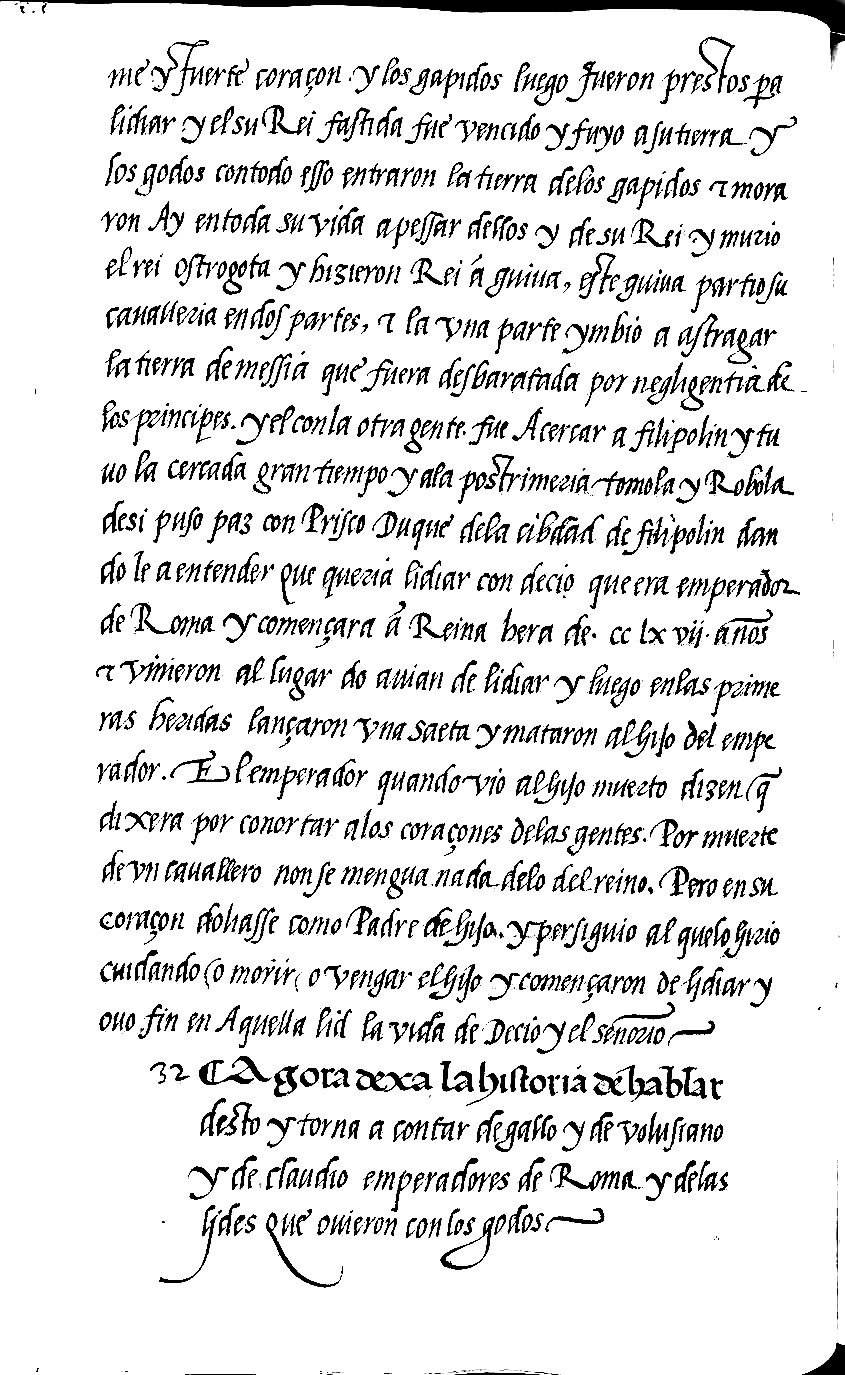 me y fuerte coraçon y los gapidos luego fueron prestos pa
lidiar y el su Rei fastida fue vencido y fuyo a su tierra y
los godos contodo esso entraron la tierra delos gapidos τ mora
ron Ay entoda su vida apessar dellos y de su Rei y murio
el rei ostrogota y hizieron Rei á guiua, este guiua partio su
cauallería en dos partes, τ la vna parte ymbio a astragar
la tierra de messia que fuera desbaratada por negligentia de
los principes. y el con la otra gente fue Acercar a filipolin y tu
uo la cercada gran tiempo y ala postrimeria tomola y Robola
desi puso paz con Prisco Duque dela cibdad de filipolin dan
do le a entender que queria lidiar con decio que era emperador
de Roma y començara á Reina hera de. cc lx vii. años
τ vinieron al lugar do auian de lidiar y luego enlas prime
ras heridas lançaron vna saeta y mataron al hijo del empe
rador. El emperador quando vio al hijo muerto dizen q̃
dixera por conortar alos coraçones delas gentes. Por muerte
de vn cauallero non se mengua nada delo del reino. Pero en su
coraçon doliasse como Padre de hijo. y persiguio al quelo hirio
cuidando o morir o vengar el hijo y començaron de lidiar y
ouo fin en Aquella lid la vida de Decio y el señorio
32 Agora dexa la historia de hablar
desto y torna a contar de gallo y de volusiano
y de claudio emperadores de Roma y delas
lides que ouieron con los godos